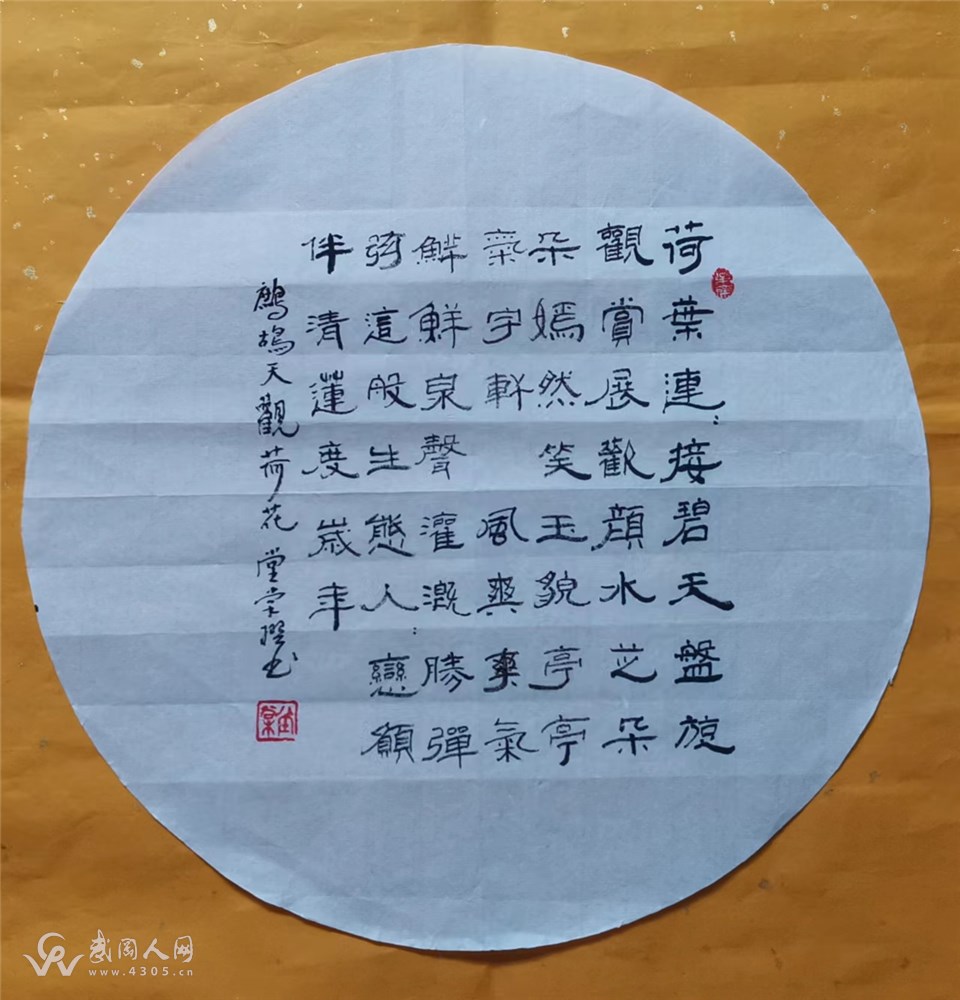 荷葉連:接碧天盤旋
觀賞展歡顔水芝朵
朵嫣然笑玉貌亭亭
氣宇軒 風爽爽氣
鮮鮮泉聲灌溉勝彈
弦這般生態人:戀願
伴清蓮度歲年
鷓鴣天觀荷花 堂棠撰书
武冈人网
www.4305.cn